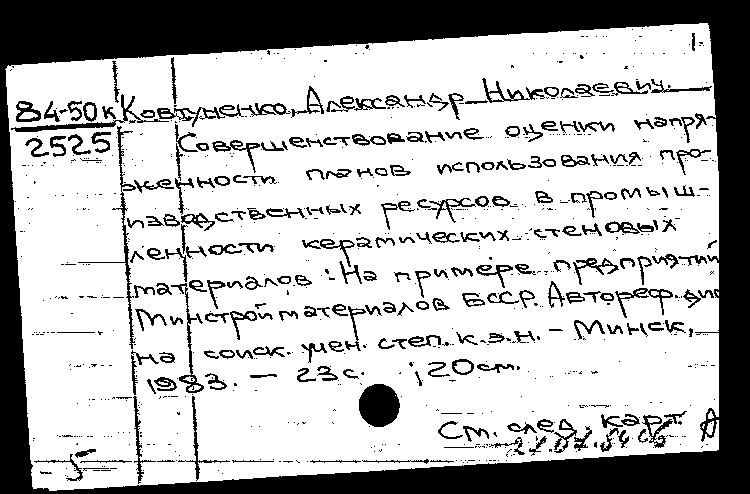 1.
84-50к Ковтуненко, Александр Николаевич.
2525 Совершенствование оценки напря-
женности планов использования про-
изводственных ресурсов в промыш-
ленности керамических стеновых
материалов : На примере предприятий
Минстройматериалов БССР. Автореф. дис
на соиск. учен. степ. к.э.н. - Минск,
1983. - 23 с. ; 20 см.
См. след. карт. А
5